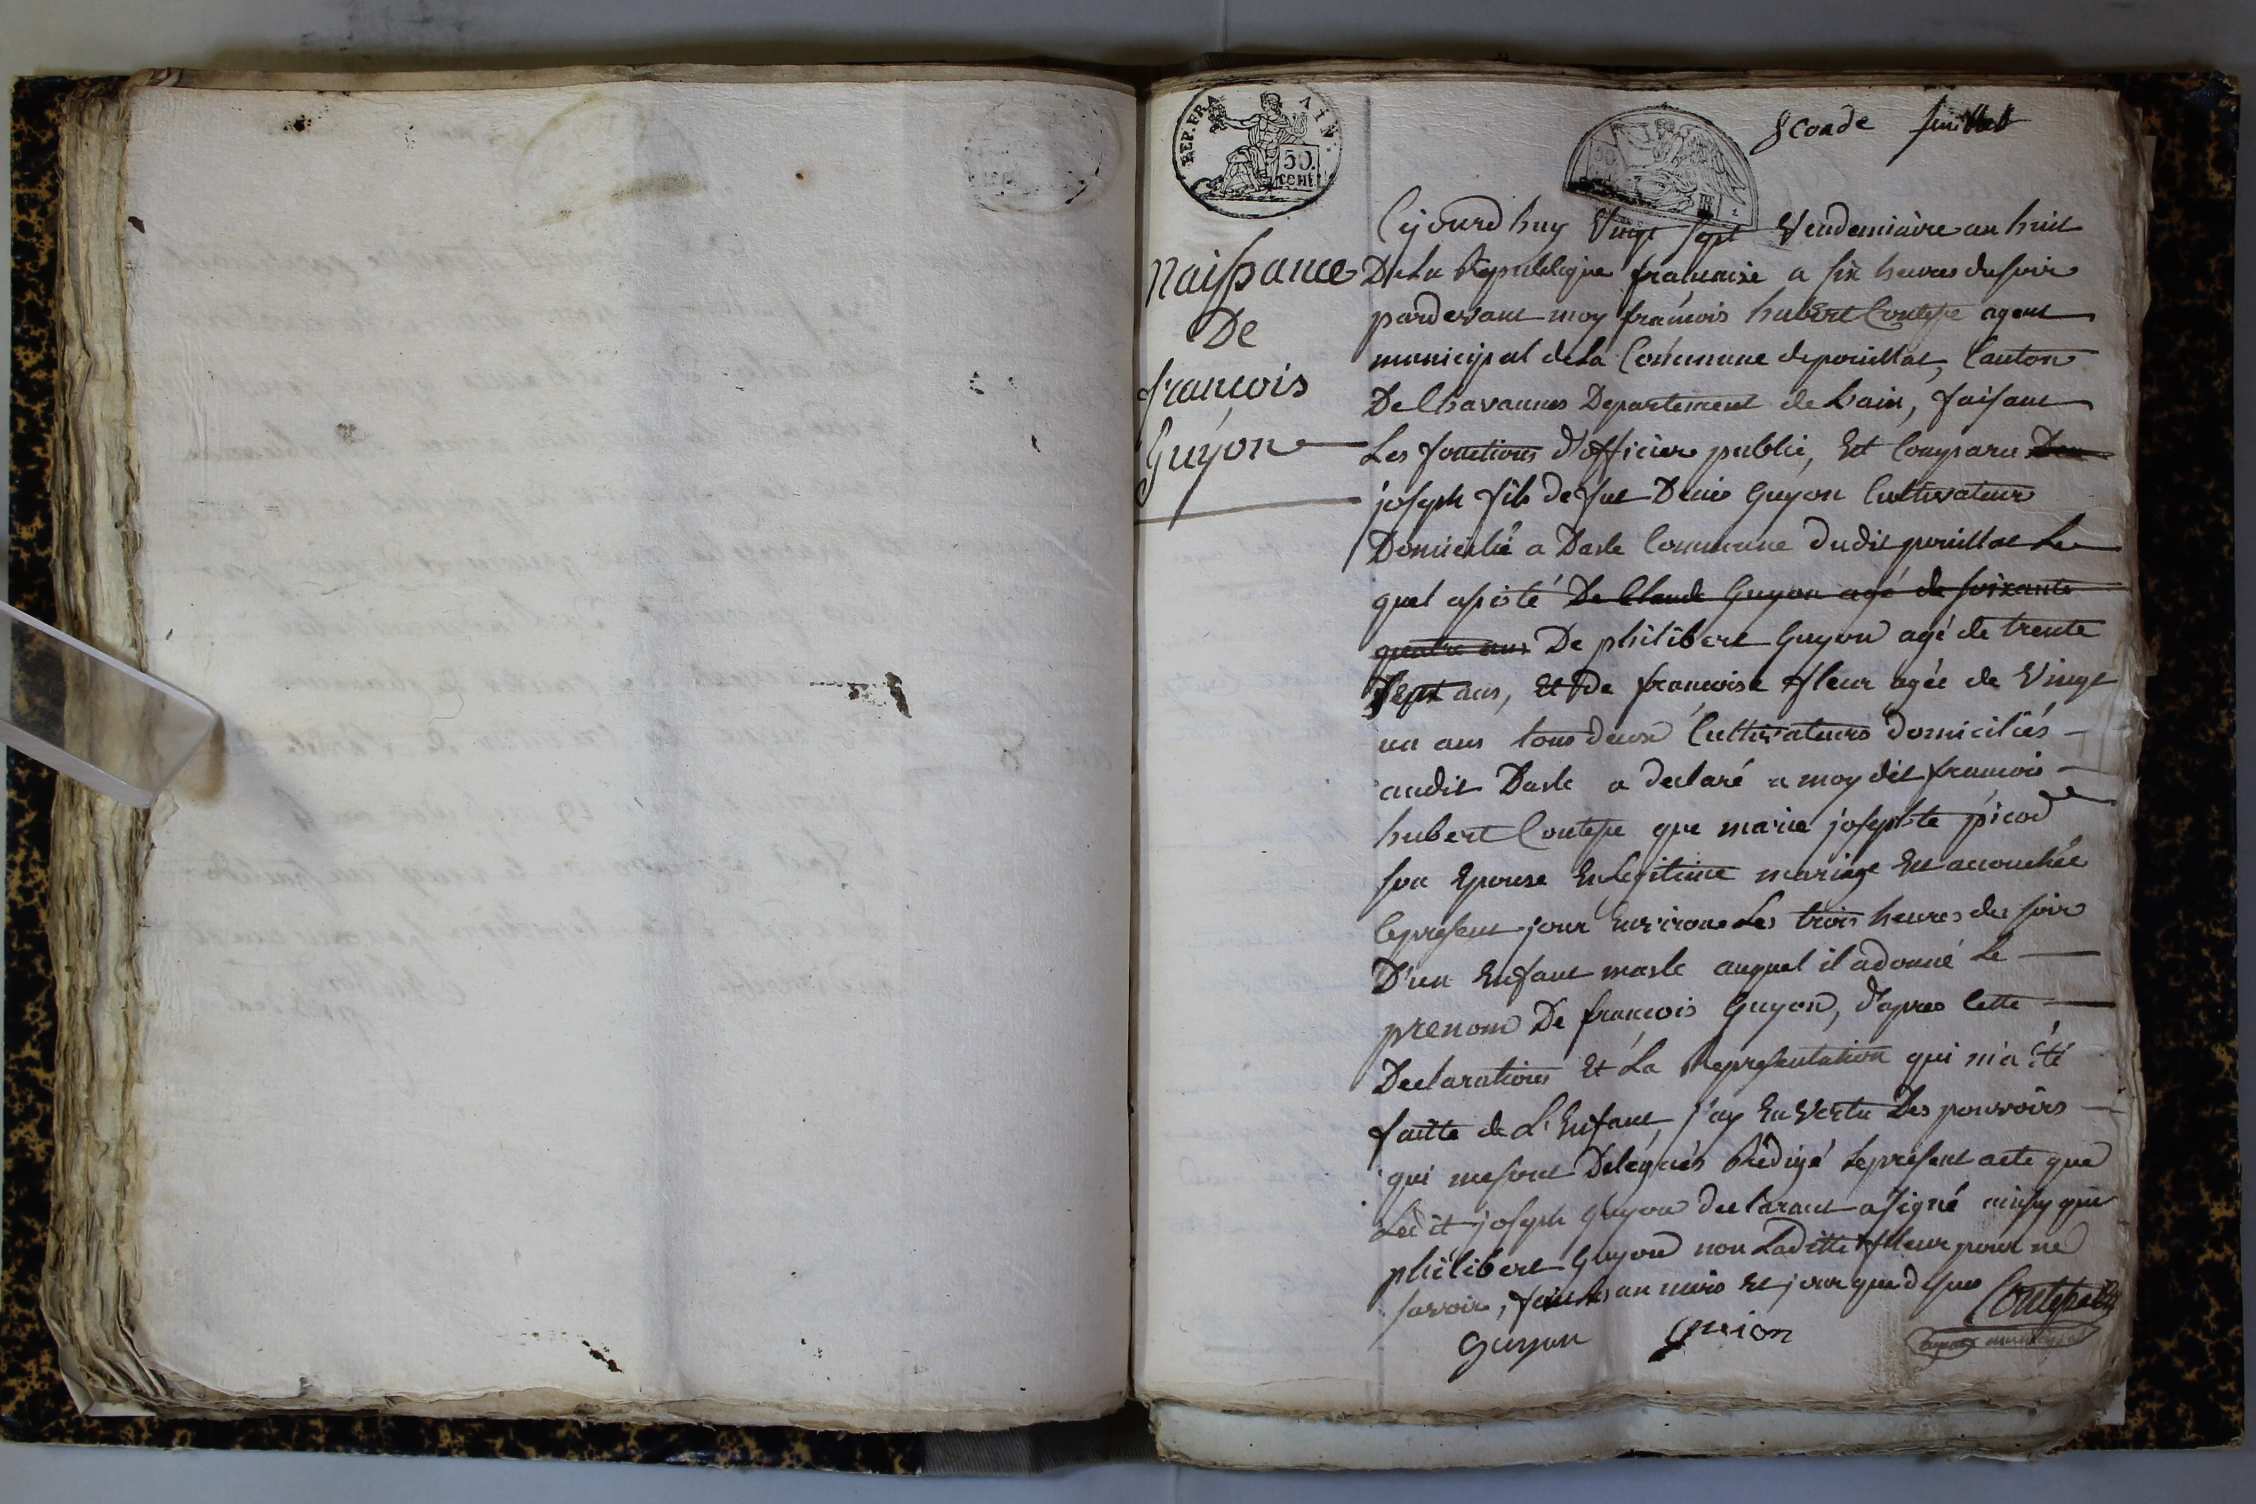 REP. FRA
50.
cent.
Sconde feuillet
Naissance
De
françois
Guÿon
Cejourd huy Vingt Sept Vendemiaire an huit
De La Republique francaise a six heures du soir
pardevant moy francois hubert Contesse agent
municipal de La Commune de pouillat, Canton
De Chavannes Departement de Lain, faisant
Les fonctions d'officier public, Est Comparu
joseph fils de fut Denis Guyon Cultivateur
Domicilié a Dasle Commune dudit pouillat Le
quel assisté De Claude Guyon agé de soixante
quatre ans De philibert Guyon agé de trente
Sept ans, et De francoise fleur agée de Vingt
un ans tous deux Cultivateurs domiciliés
audit Dasle a declaré a moy dit francois
hubert Contesse que marie josephte picod
son Epouse En Legitime mariage Est accouchée
Cepresent jour Environ Les trois heures du soir
D'un Enfant masle auquel il a donné Le
prenom De francois Guyon, d'apres Cette
Declarations Et La Representation qui m'a été
faitte de L'Enfant, j'ay En Vertu Des pouvoirs
qui me sont Delegués Rédigé Le présent acte que
Ledit joseph Guyon declarant a signé ainsy que
philibert Guyon non Laditte fleur pour ne
savoir, fait Les an mois et jour que dessus Contesse
Guyon guion
agent municipal